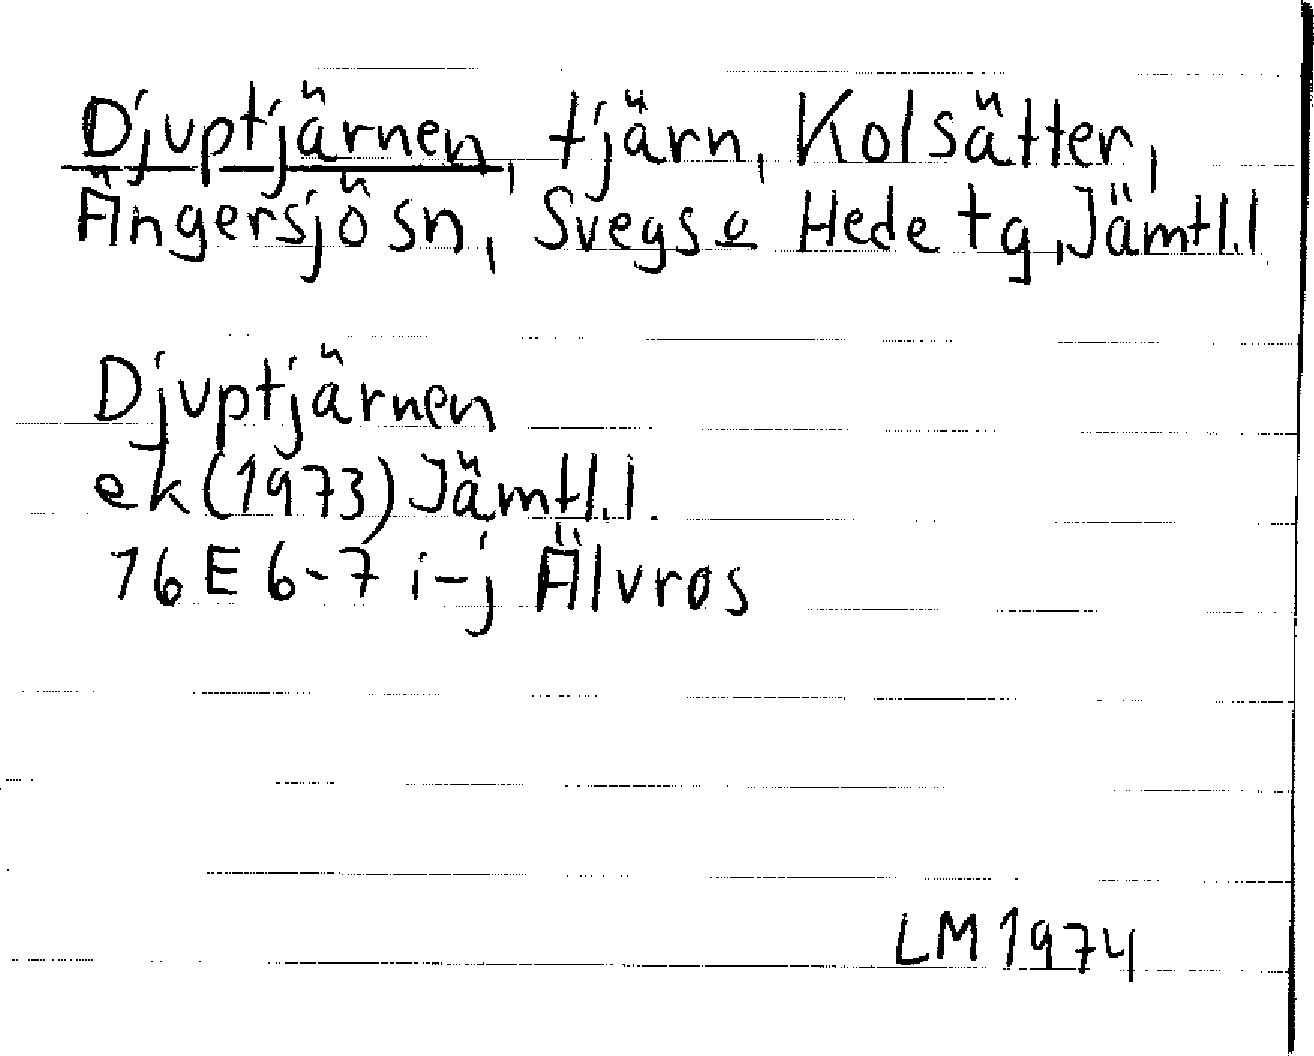 Djuptjärnen, tjärn, Kolsätter,
Ängersjö sn, Svegs o Hede tg, Jämtl.l
Djuptjärnen
ek (1973) Jämtl.l.
16 E 6-7 i-j Älvros
LM 1974